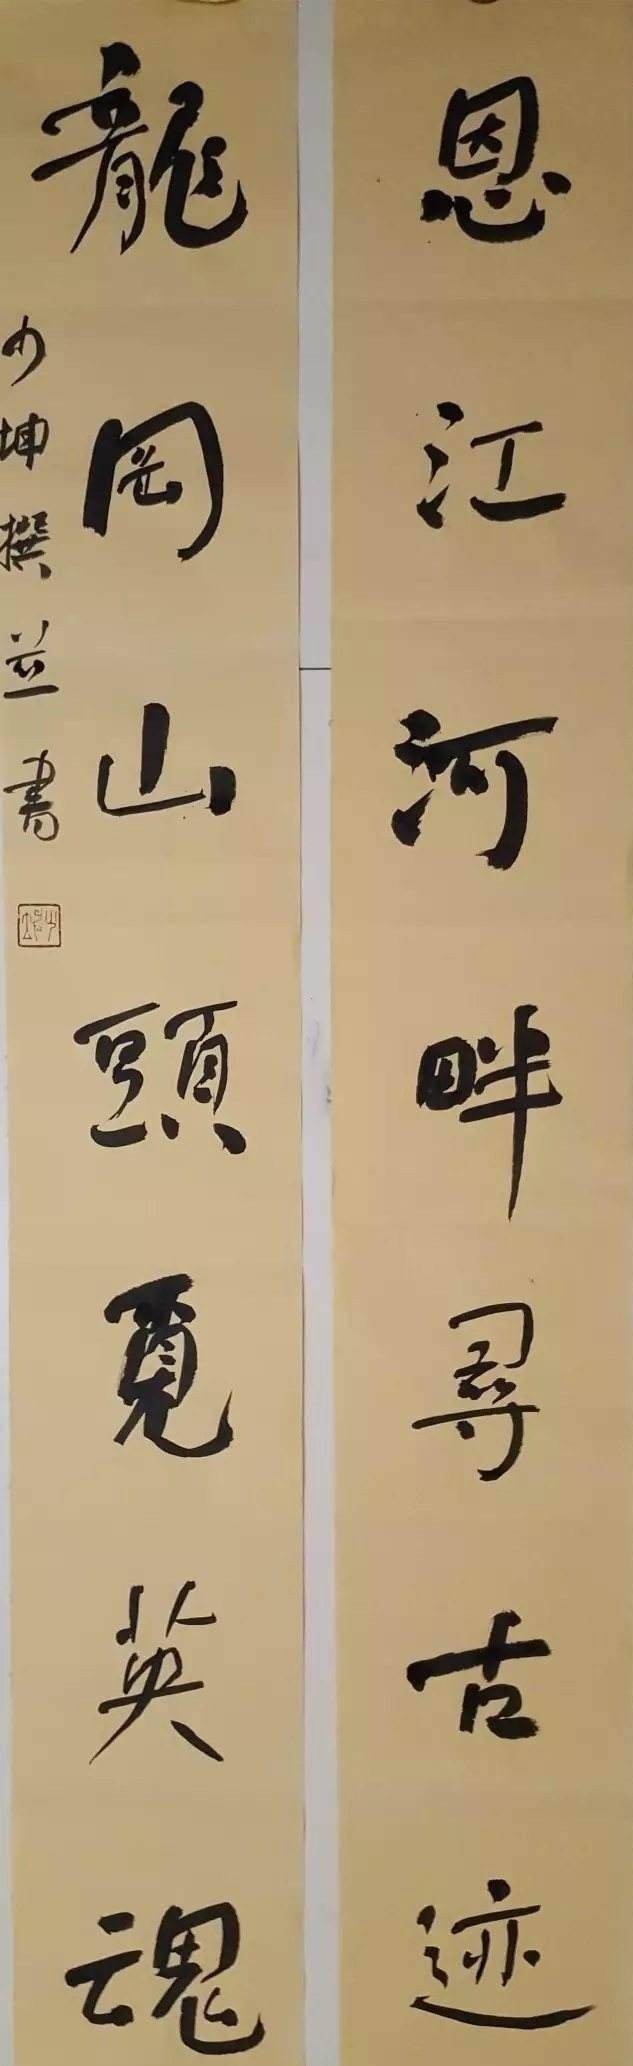 恩江河畔尋古迹
龍岡山頭覓英魂
少坤撰並書